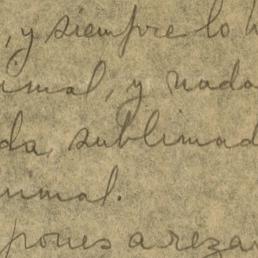 , y siempre lo h
imal, y nada
da, sublimad
nimal.
pones a reza